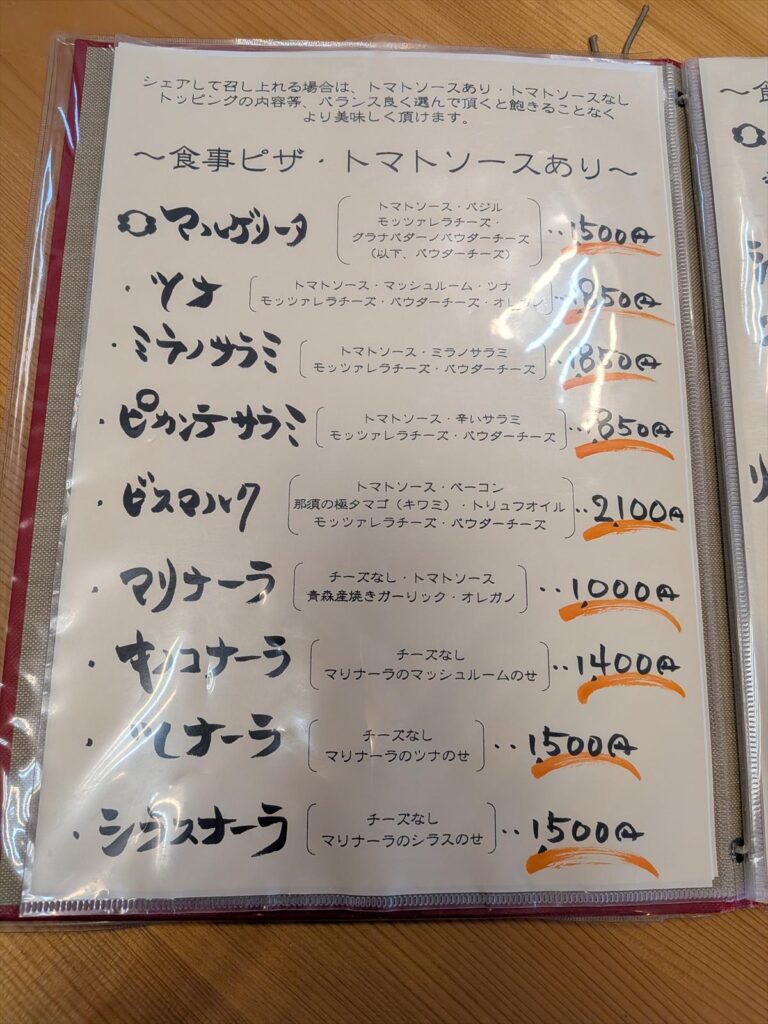 シェアして召し上れる場合は、トマトソースあり・トマトソースなし
トッピングの内容等、バランス良く選んで頂くと飽きることなく
より美味しく頂けます。
～食事ピザ・トマトソースあり～
マルゲリータ
トマトソース・バジル
モッツァレラチーズ・
グラナパダーノパウダーチーズ
（以下、パウダーチーズ）
‥1500円
・ツナ
トマトソース・マッシュルーム・ツナ
モッツァレラチーズ・パウダーチーズ・オレガノ
・ミラノサラミ
トマトソース・ミラノサラミ
モッツァレラチーズ・パウダーチーズ
‥1850円
・ピカンテサラミ
トマトソース・辛いサラミ
モッツァレラチーズ・パウダーチーズ
・ビスマルク
トマトソース・ベーコン
那須の極タマゴ（キワミ）・トリュフオイル
モッツァレラチーズ・パウダーチーズ
‥2,100円
・マリナーラ
チーズなし・トマトソース
青森産焼きガーリック・オレガノ
‥1,000円
・キノコナーラ
チーズなし
マリナーラのマッシュルームのせ
‥1,400円
チーズなし
マリナーラのツナのせ
‥1,500円
・シラスナーラ
チーズなし
マリナーラのシラスのせ
‥1,500円
～食